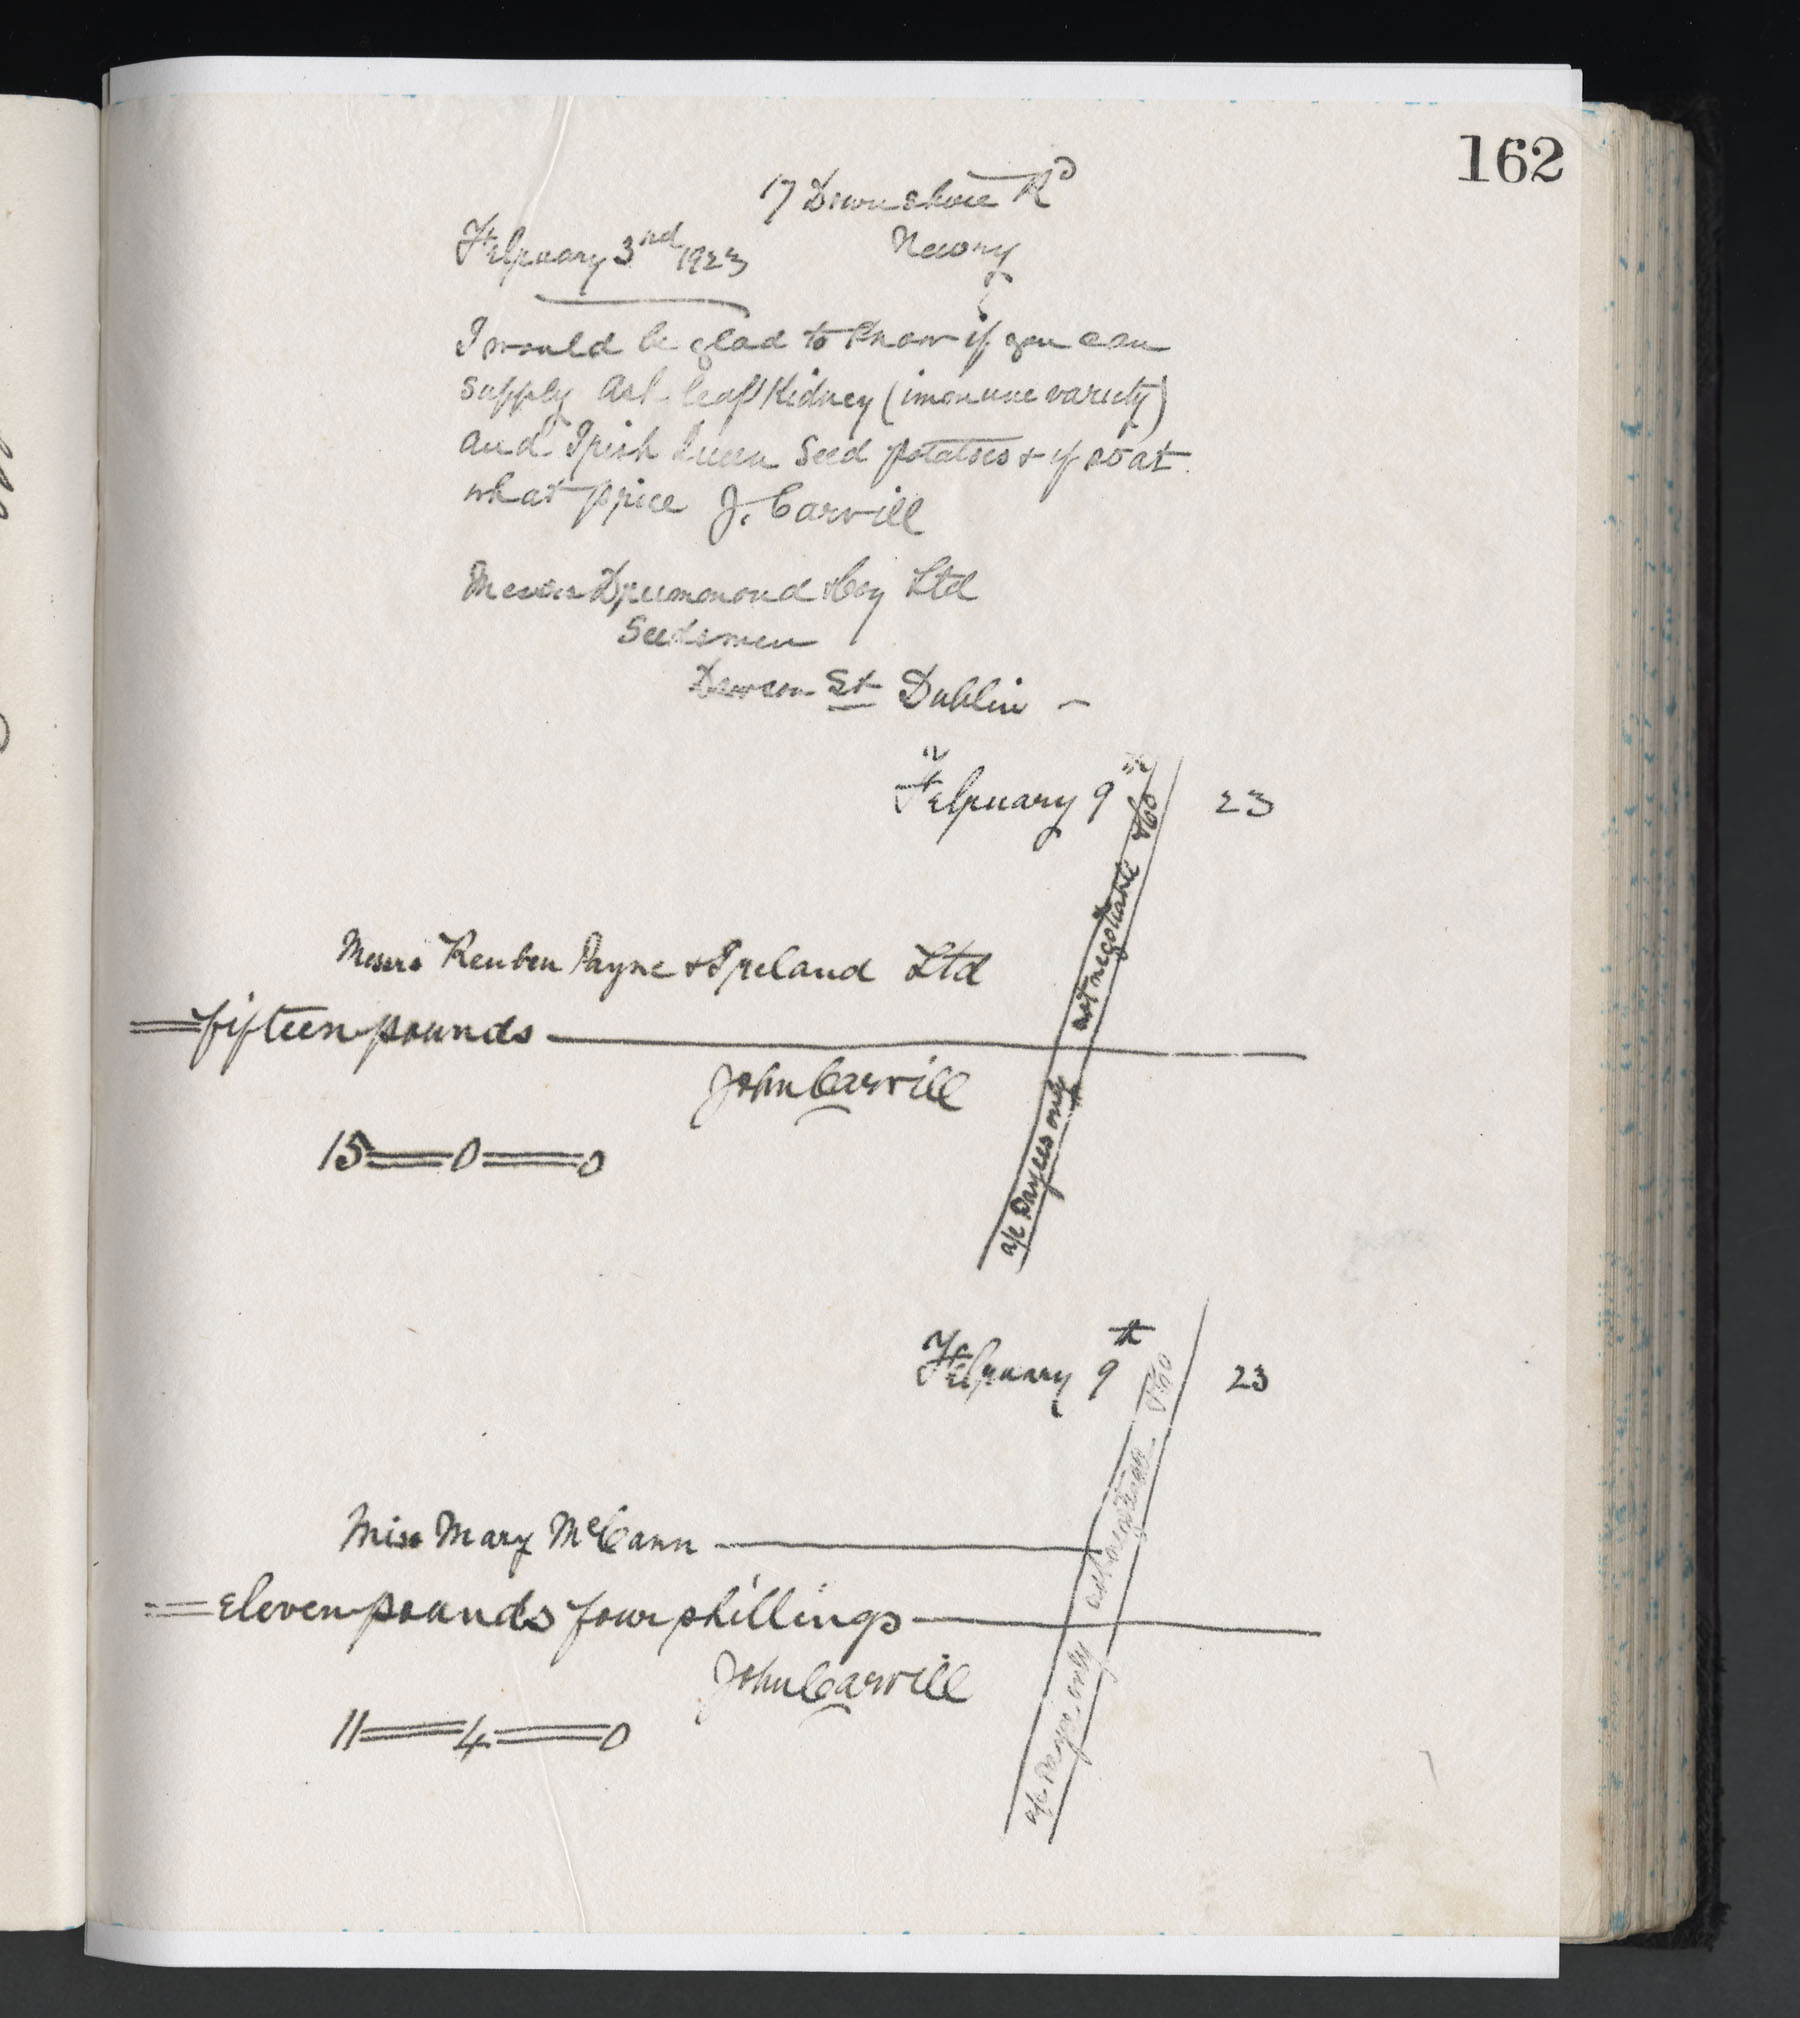 162
17 Downshire Rd
February 3rd 1923
Newry
I would be glad to know if you can
supply Ash leaf Kidney (immune variety)
and Irish Queen Seed potatoes & if so at
what price J. Carvill
Messrs Drummond & Coy Ltd
Seedsmen
Dawson St Dublin —
February 9th 23
Messrs Reuben Payne & Ireland Ltd
fifteen pounds
John Carvill
15 = 0 = 0
a/c Payees only not negotiable & Co
February 9th 23
Miss Mary McCann
eleven pounds four shillings
John Carvill
11 = 4 = 0
a/c Payee only not negotiable & Co